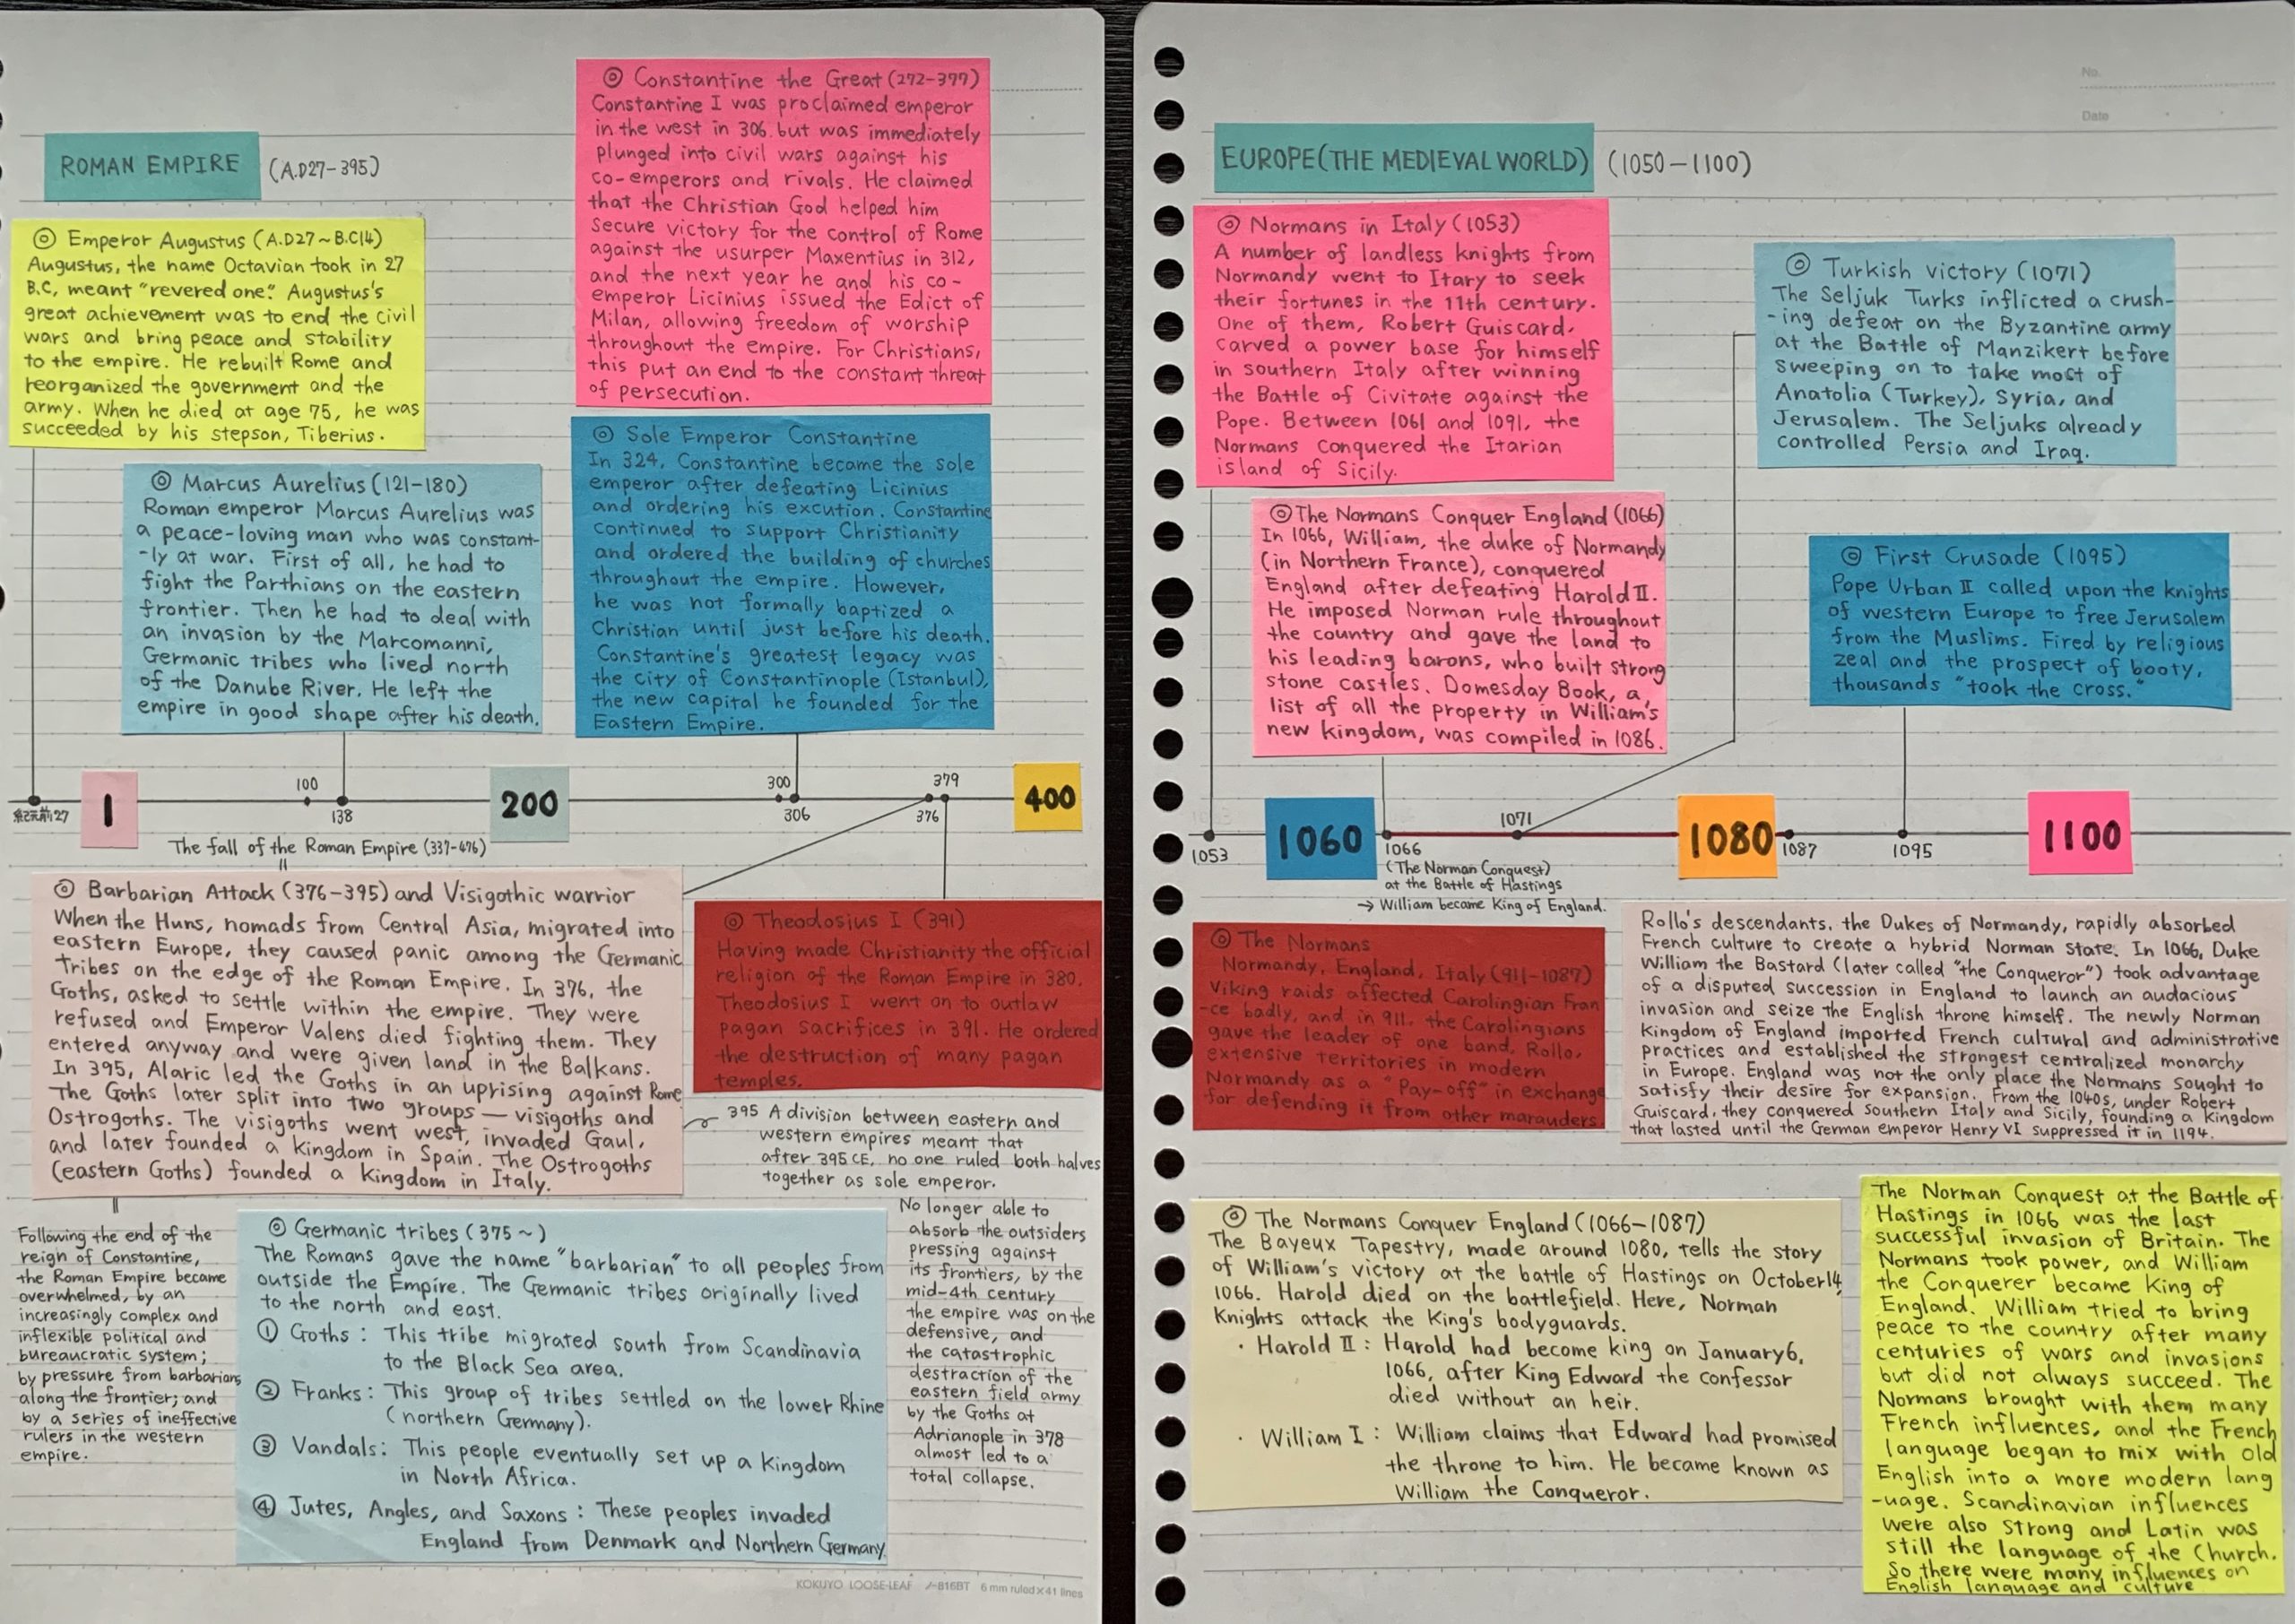 ROMAN EMPIRE (A.D27-395)
◎ Emperor Augustus (A.D27~B.C14)
Augustus, the name Octavian took in 27
B.C, meant "revered one". Augustus's
great achievement was to end the civil
wars and bring peace and stability
to the empire. He rebuilt Rome and
reorganized the government and the
army. When he died at age 75, he was
succeeded by his stepson, Tiberius.
◎ Marcus Aurelius (121-180)
Roman emperor Marcus Aurelius was
a peace-loving man who was constant-
-ly at war. First of all, he had to
fight the Parthians on the eastern
frontier. Then he had to deal with
an invasion by the Marcomanni,
Germanic tribes who lived north
of the Danube River. He left the
empire in good shape after his death.
◎ Constantine the Great (272-377)
Constantine I was proclaimed emperor
in the west in 306, but was immediately
plunged into civil wars against his
co-emperors and rivals. He claimed
that the Christian God helped him
secure victory for the control of Rome
against the usurper Maxentius in 312,
and the next year he and his co-
emperor Licinius issued the Edict of
Milan, allowing freedom of worship
throughout the empire. For Christians,
this put an end to the constant threat
of persecution.
◎ Sole Emperor Constantine
In 324, Constantine became the sole
emperor after defeating Licinius
and ordering his excution. Constantine
continued to support Christianity
and ordered the building of churches
throughout the empire. However,
he was not formally baptized a
Christian until just before his death.
Constantine's greatest legacy was
the city of Constantinople (Istanbul),
the new capital he founded for the
Eastern Empire.
紀元前27
1
100
138
200
300
306
376
379
400
The fall of the Roman Empire (337-476)
◎ Barbarian Attack (376-395) and Visigothic warrior
When the Huns, nomads from Central Asia, migrated into
eastern Europe, they caused panic among the Germanic
Tribes on the edge of the Roman Empire. In 376, the
Goths, asked to settle within the empire. They were
refused and Emperor Valens died fighting them. They
entered anyway and were given land in the Balkans.
In 395, Alaric led the Goths in an uprising against Rome
The Goths later split into two groups — visigoths and
Ostrogoths. The visigoths went west, invaded Gaul,
and later founded a kingdom in Spain. The Ostrogoths
(eastern Goths) founded a kingdom in Italy.
◎ Theodosius I (391)
Having made Christianity the official
religion of the Roman Empire in 380,
Theodosius I went on to outlaw
pagan sacrifices in 391. He ordered
the destruction of many pagan
temples.
395 A division between eastern and
western empires meant that
after 395 CE, no one ruled both halves
together as sole emperor.
Following the end of the
reign of Constantine,
the Roman Empire became
overwhelmed, by an
increasingly complex and
inflexible political and
bureaucratic system;
by pressure from barbarians
along the frontier; and
by a series of ineffective
rulers in the western
empire.
◎ Germanic tribes (375~)
The Romans gave the name "barbarian" to all peoples from
outside the Empire. The Germanic tribes originally lived
to the north and east.
① Goths : This tribe migrated south from Scandinavia
to the Black Sea area.
② Franks : This group of tribes settled on the lower Rhine
(northern Germany).
③ Vandals : This people eventually set up a kingdom
in North Africa.
④ Jutes, Angles, and Saxons : These peoples invaded
England from Denmark and Northern Germany.
No longer able to
absorb the outsiders
pressing against
its frontiers, by the
mid-4th century
the empire was on the
defensive, and
the catastrophic
destraction of the
eastern field army
by the Goths at
Adrianople in 378
almost led to a
total collapse.
KOKUYO LOOSE-LEAF ノ-816BT 6 mm ruled×41 lines
No.
Date
EUROPE(THE MEDIEVAL WORLD) (1050-1100)
◎ Normans in Italy (1053)
A number of landless knights from
Normandy went to Itary to seek
their fortunes in the 11th century.
One of them, Robert Guiscard,
carved a power base for himself
in southern Italy after winning
the Battle of Civitate against the
Pope. Between 1061 and 1091, the
Normans conquered the Itarian
island of Sicily.
◎ The Normans Conquer England (1066)
In 1066, William, the duke of Normandy
(in Northern France), conquered
England after defeating Harold II.
He imposed Norman rule throughout
the country and gave the land to
his leading barons, who built strong
stone castles. Domesday Book, a
list of all the property in William's
new kingdom, was compiled in 1086.
◎ Turkish victory (1071)
The Seljuk Turks inflicted a crush-
-ing defeat on the Byzantine army
at the Battle of Manzikert before
sweeping on to take most of
Anatolia (Turkey), Syria, and
Jerusalem. The Seljuks already
controlled Persia and Iraq.
◎ First Crusade (1095)
Pope Urban II called upon the knights
of western Europe to free Jerusalem
from the Muslims. Fired by religious
zeal and the prospect of booty,
thousands "took the cross."
1053
1060
1066
(The Norman Conquest)
at the Battle of Hastings
→ William became King of England.
1071
1080
1087
1095
1100
◎ The Normans
Normandy, England, Italy (911-1087)
Viking raids affected Carolingian Fran
-ce badly, and in 911, the Carolingians
gave the leader of one band, Rollo,
extensive territories in modern
Normandy as a "Pay-off" in exchange
for defending it from other marauders
Rollo's descendants, the Dukes of Normandy, rapidly absorbed
French culture to create a hybrid Norman state. In 1066, Duke
William the Bastard (later called "the Conqueror") took advantage
of a disputed succession in England to launch an audacious
invasion and seize the English throne himself. The newly Norman
Kingdom of England imported French cultural and administrative
practices and established the strongest centralized monarchy
in Europe. England was not the only place the Normans sought to
satisfy their desire for expansion. From the 1040s, under Robert
Guiscard, they conquered Southern Italy and Sicily, founding a kingdom
that lasted until the German emperor Henry VI suppressed it in 1194.
◎ The Normans Conquer England (1066-1087)
The Bayeux Tapestry, made around 1080, tells the story
of William's victory at the battle of Hastings on October14,
1066. Harold died on the battlefield. Here, Norman
Knights attack the King's bodyguards.
・Harold II : Harold had become king on January6,
1066, after King Edward the confessor
died without an heir.
・William I : William claims that Edward had promised
the throne to him. He became known as
William the Conqueror.
The Norman Conquest at the Battle of
Hastings in 1066 was the last
successful invasion of Britain. The
Normans took power, and William
the Conquerer became King of
England. William tried to bring
peace to the country after many
centuries of wars and invasions
but did not always succeed. The
Normans brought with them many
French influences, and the French
language began to mix with old
English into a more modern lang
-uage. Scandinavian influences
were also strong and Latin was
still the language of the Church.
So there were many influences on
English language and culture